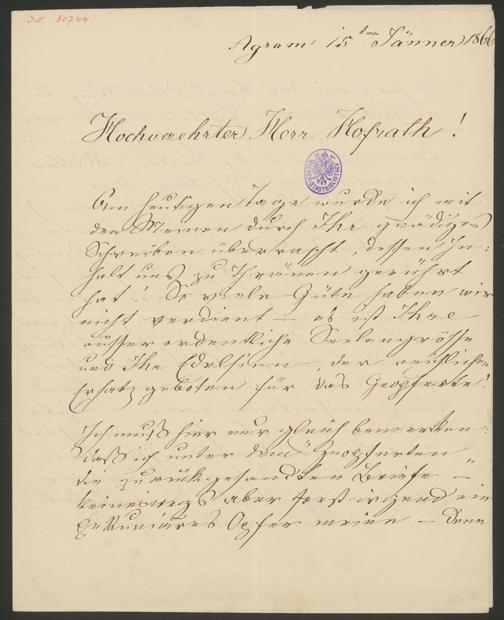 J.N. 80744
Agram, 15ten Jänner 1866
Hochverehrter Herr Hofrath!
Am heutigen Tage wurde ich mit
den Meinen durch Ihr gnädiges
Schreiben überrascht, dessen In-
halt uns zu Thränen gerührt
hat! So viele Güte haben wir
nicht verdient – es ist Ihre
ausserordentliche Seelengrösse
und Ihr Edelsinn, der reichlichen
Ersatz geboten für das Geopferte!
Ich muß hier nur gleich bemerken:
daß ich unter dem "Geopferten"
die zurückgesandten Briefe –
keineswegs aber irgend ein
pekuniäres Opfer meine – denn